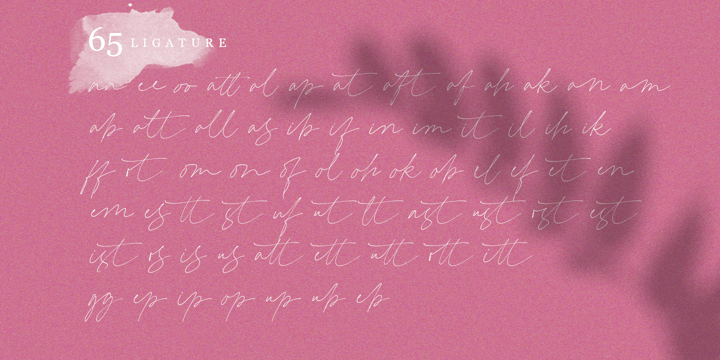 65 LIGATURE
an ee oo att al ap at aft af ah ak an am
ab ott all as ib if in im it il ih ik
ff rt om on of ol oh ok ob el ef et en
em es tt st uf ut lt ast ust ost est
ist os is us att ett utt ott itt
gg ep ip op up ub eb